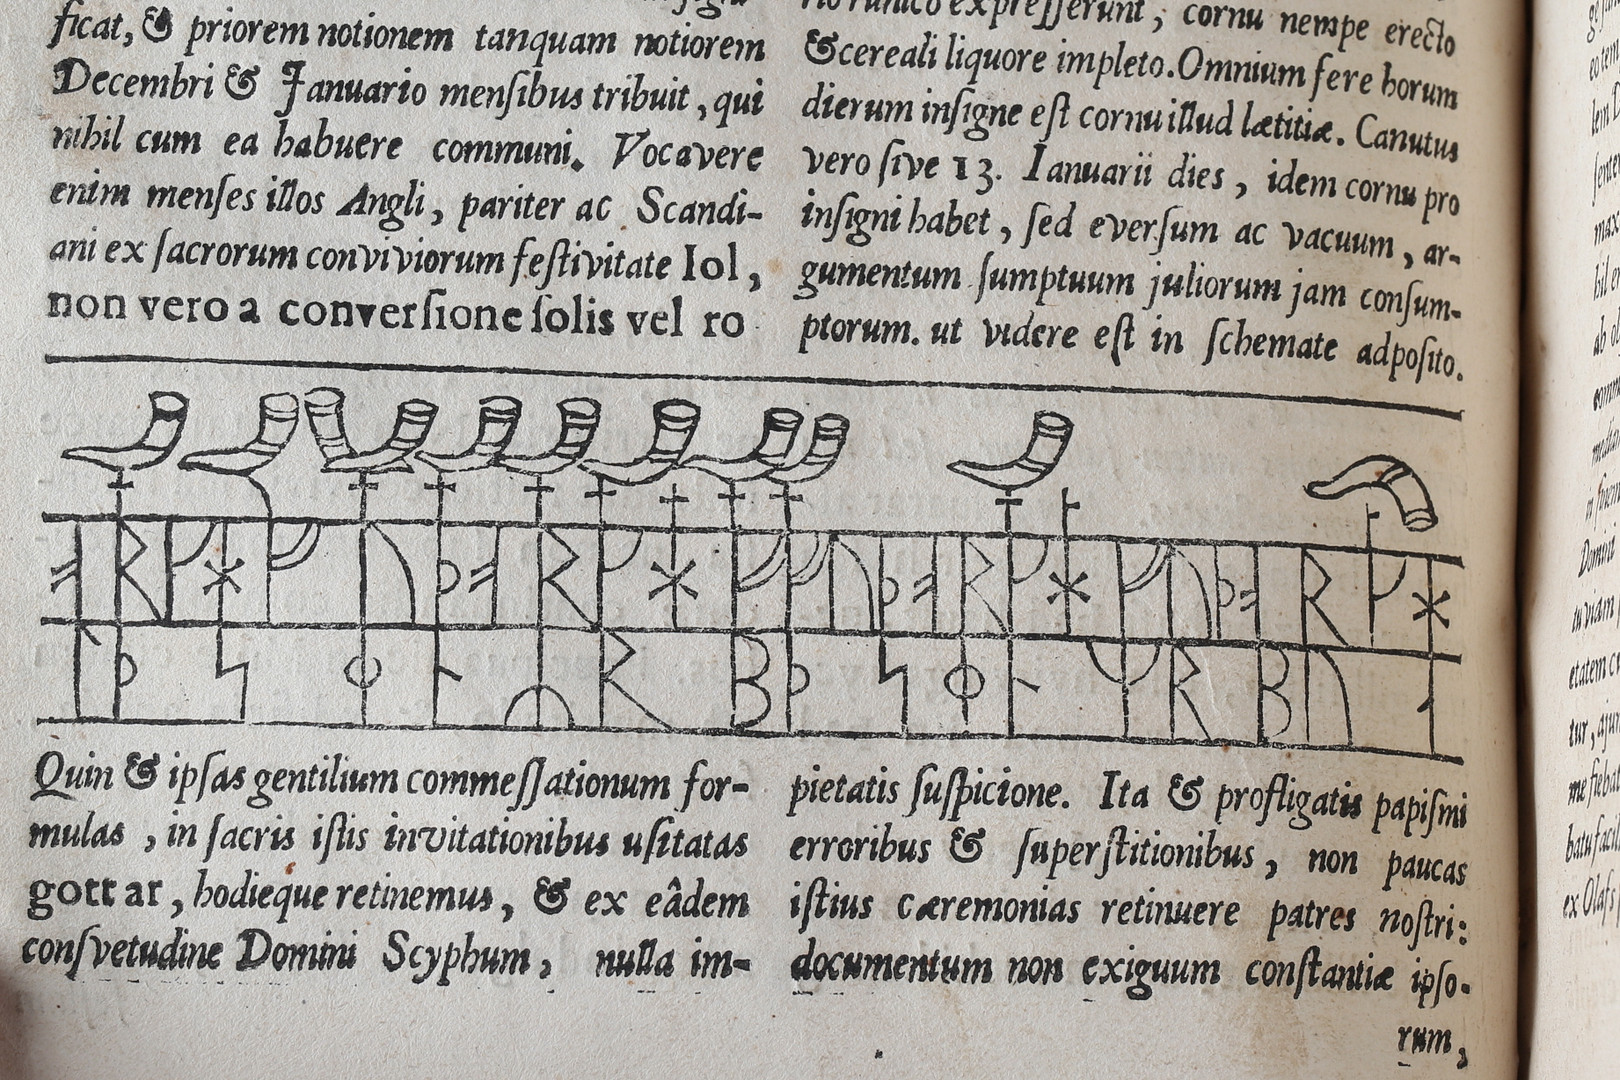 ficat, & priorem notionem tanquam notiorem
Decembri & Januario mensibus tribuit, qui
nihil cum ea habuere communi. Vocavere
enim menses illos Angli, pariter ac Scandi-
ani ex sacrorum conviviorum festivitate Iol,
non vero a conversione solis vel ro
rio runico expresserunt, cornu nempe erecto
& cereali liquore impleto. Omnium fere horum
dierum insigne est cornu illud lætitiæ. Canutus
vero sive 13. Ianuarii dies, idem cornu pro
insigni habet, sed eversum ac vacuum, ar-
gumentum sumptuum juliorum jam consum-
ptorum. ut videre est in schemate adposito.
Quin & ipsas gentilium commessationum for-
mulas, in sacris istis invitationibus usitatas
gott ar, hodieque retinemus, & ex eâdem
consvetudine Domini Scyphum, nulla im-
pietatis suspicione. Ita & profligatis papismi
erroribus & superstitionibus, non paucas
istius cæremonias retinuere patres nostri:
documentum non exiguum constantiæ ipso-
rum,